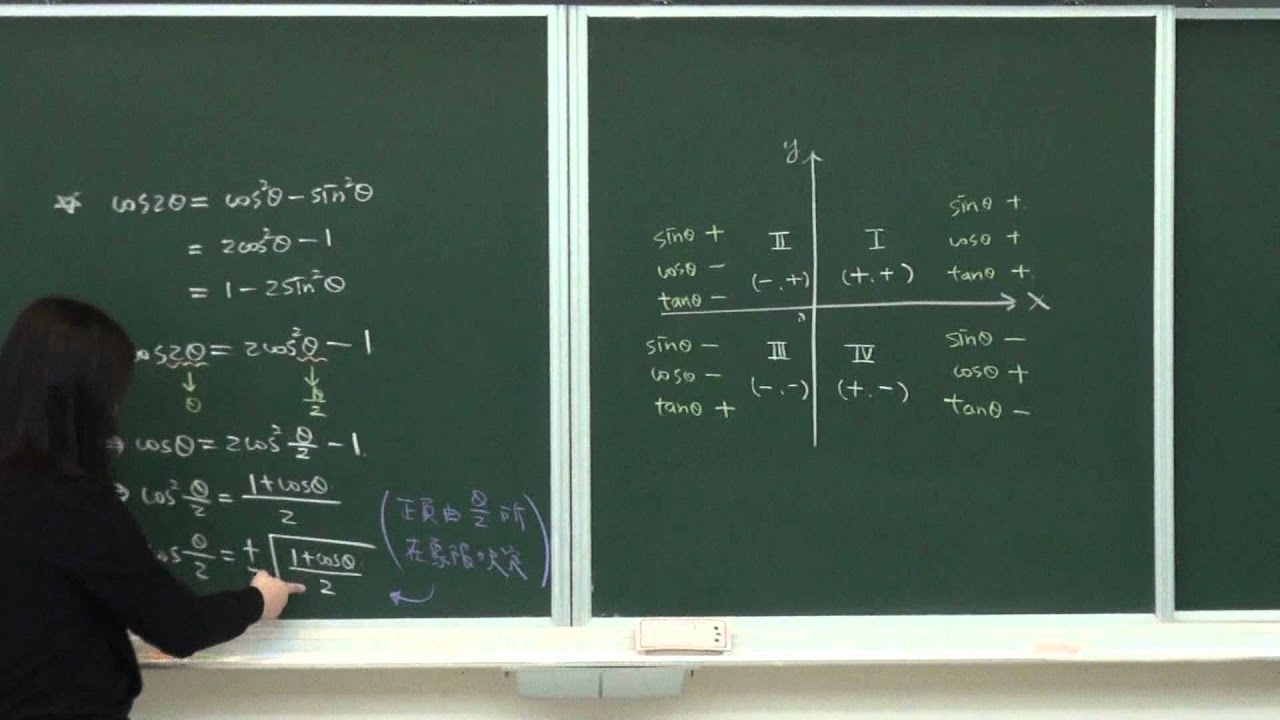 cos2θ = cos²θ − sin²θ
= 2cos²θ − 1
= 1 − 2sin²θ
cos2θ = 2cos²θ − 1
↓ ↓
θ θ/2
⇒ cosθ = 2cos² θ/2 − 1
⇒ cos² θ/2 = (1+cosθ)/2
cos θ/2 = ± √((1+cosθ)/2)
(正負由 θ/2 所
在象限決定)
y
x
II
(−,+)
sinθ +
cosθ −
tanθ −
I
(+,+)
sinθ +
cosθ +
tanθ +
III
(−,−)
sinθ −
cosθ −
tanθ +
IV
(+,−)
sinθ −
cosθ +
tanθ −